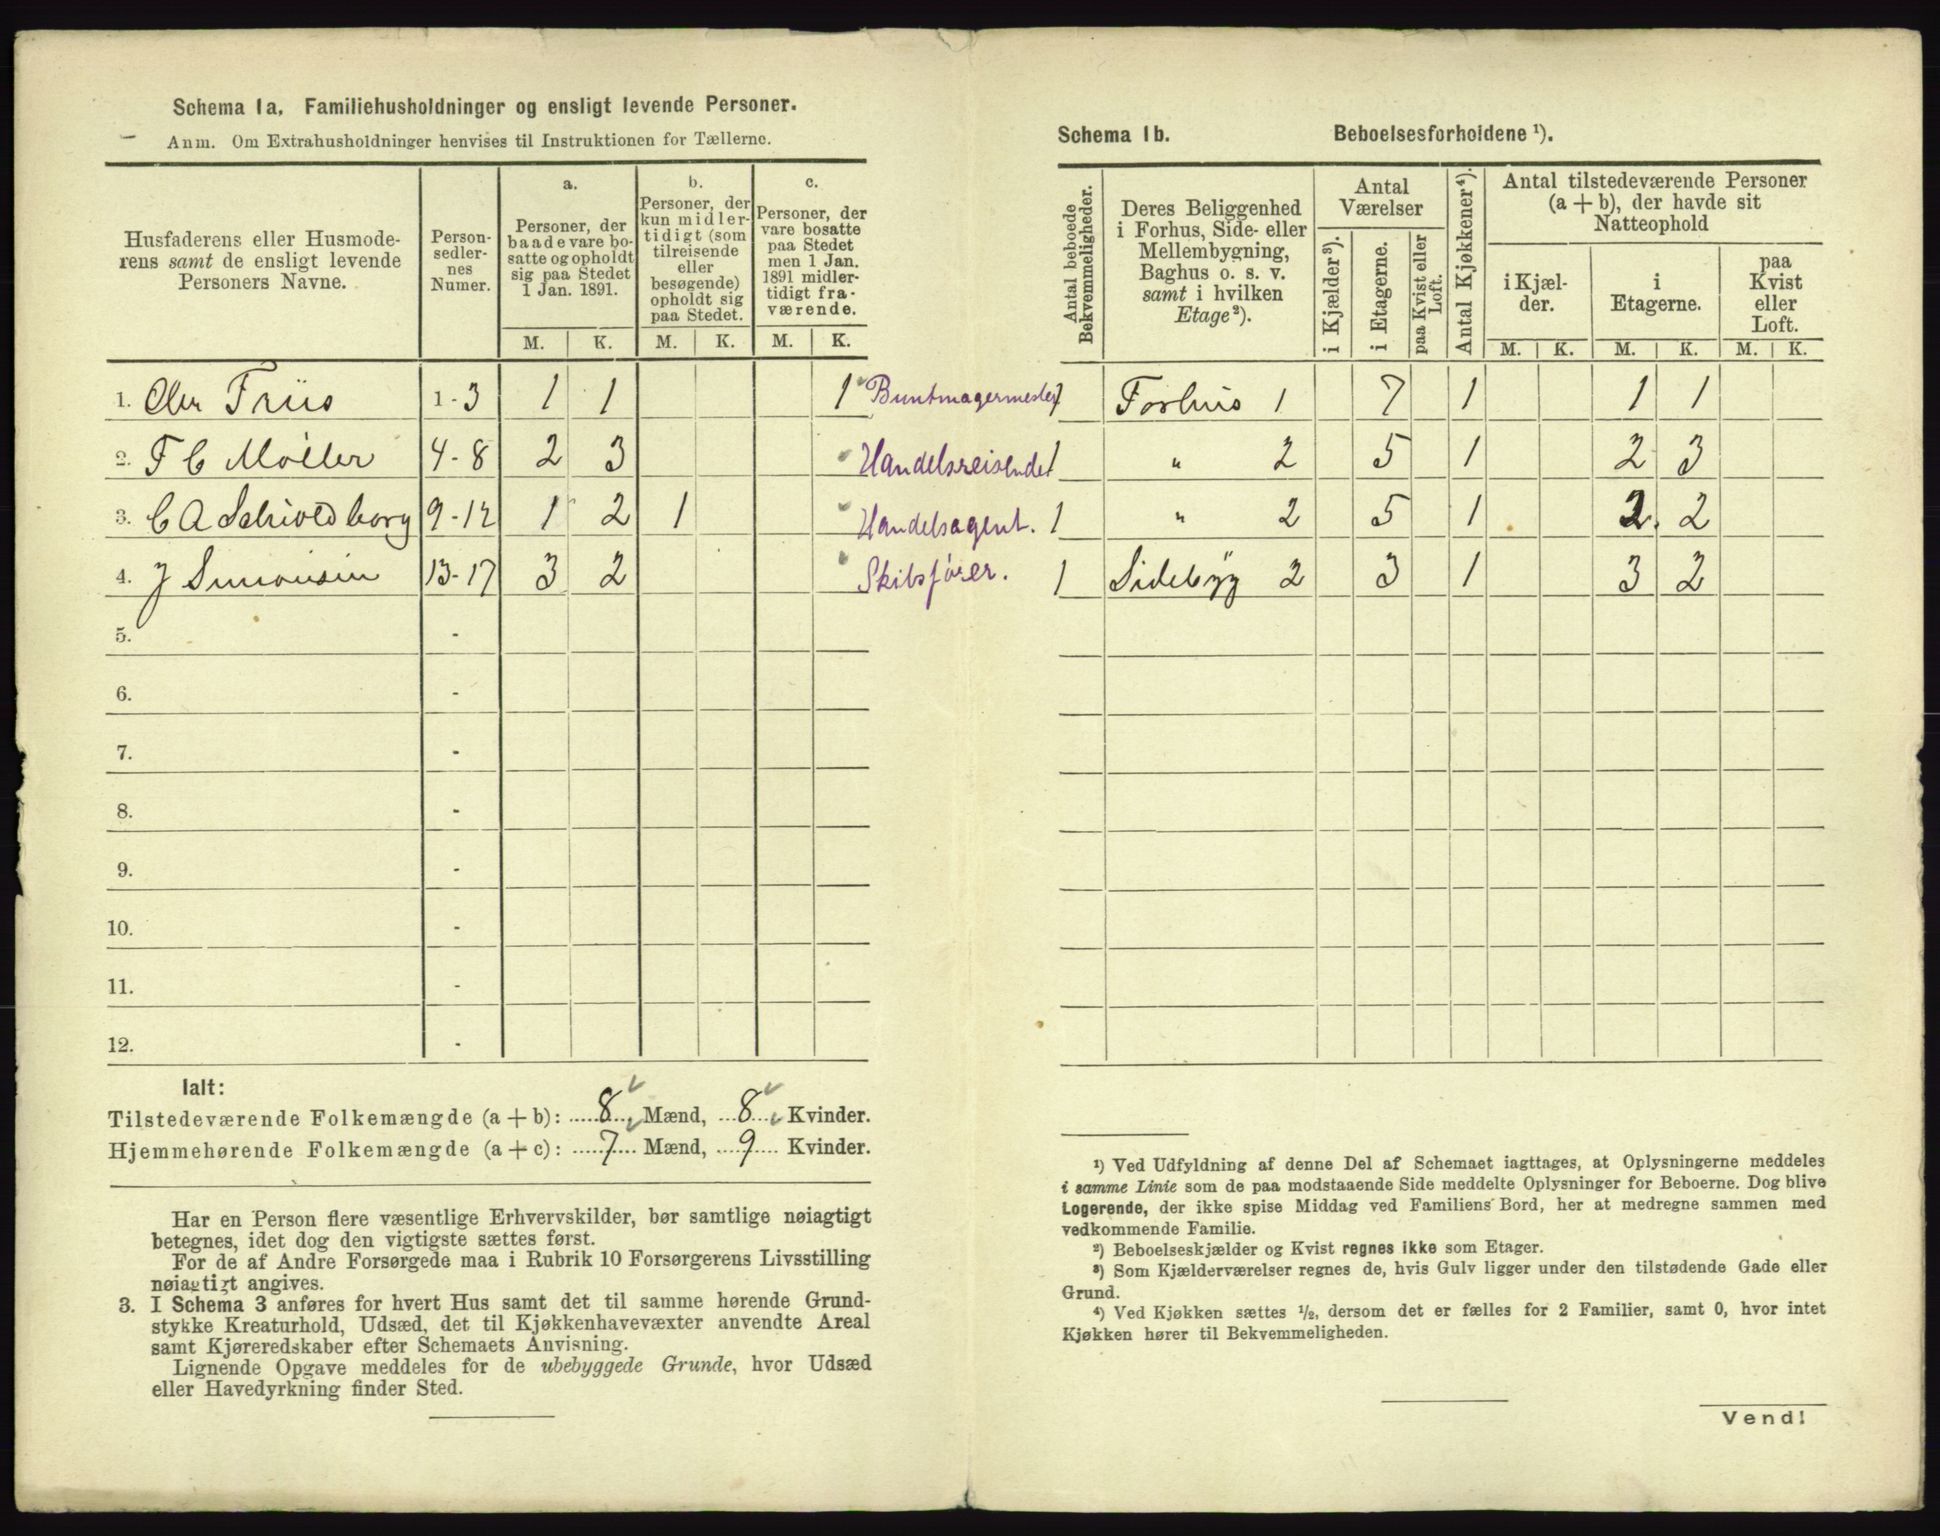 Schema 1a. Familiehusholdninger og ensligt levende Personer.
Anm. Om Extrahusholdninger henvises til Instruktionen for Tællerne.
Husfaderens eller Husmode-
rens samt de ensligt levende
Personers Navne.
Person-
sedler-
nes
Numer.
a.
Personer, der
baade vare bo-
satte og opholdt
sig paa Stedet
1 Jan. 1891.
b.
Personer, der
kun midler-
tidigt (som
tilreisende
eller
besøgende)
opholdt sig
paa Stedet.
c.
Personer, der
vare bosatte
paa Stedet
men 1 Jan.
1891 midler-
tidigt fra-
værende.
M. K. M. K. M. K.
1. Chr Friis 1-3 1 1 1 Buntmagermester
2. F C Møller 4-8 2 3 Handelsreisende
3. C A Schioldborg 9-12 1 2 1 Handelsagent.
4. J Simonsen 13-17 3 2 Skibsfører.
5. -
6. -
7. -
8. -
9. -
10. -
11. -
12. -
Ialt:
Tilstedeværende Folkemængde (a + b): 8 Mænd, 8 Kvinder.
Hjemmehørende Folkemængde (a + c): 7 Mænd, 9 Kvinder.
Har en Person flere væsentlige Erhvervskilder, bør samtlige nøiagtigt
betegnes, idet dog den vigtigste sættes først.
For de af Andre Forsørgede maa i Rubrik 10 Forsørgerens Livsstilling
nøiagtigt angives.
3. I Schema 3 anføres for hvert Hus samt det til samme hørende Grund-
stykke Kreaturhold, Udsæd, det til Kjøkkenhavevæxter anvendte Areal
samt Kjøreredskaber efter Schemaets Anvisning.
Lignende Opgave meddeles for de ubebyggede Grunde, hvor Udsæd
eller Havedyrkning finder Sted.
Schema 1b. Beboelsesforholdene ¹).
Antal beboede
Bekvemmeligheder.
Deres Beliggenhed
i Forhus, Side- eller
Mellembygning,
Baghus o. s. v.
samt i hvilken
Etage ²).
Antal
Værelser
i Kjælder ³).
i Etagerne.
paa Kvist eller
Loft.
Antal Kjøkkener ⁴).
Antal tilstedeværende Personer
(a + b), der havde sit
Natteophold
i Kjæl-
der.
i
Etagerne.
paa
Kvist
eller
Loft.
M. K. M. K. M. K.
1 Forhus 1 7 1 1 1
1 " 2 5 1 2 3
1 " 2 5 1 2. 2
1 Sidebyg 2 3 1 3 2
¹) Ved Udfyldning af denne Del af Schemaet iagttages, at Oplysningerne meddeles
i samme Linie som de paa modstaaende Side meddelte Oplysninger for Beboerne. Dog blive
Logerende, der ikke spise Middag ved Familiens Bord, her at medregne sammen med
vedkommende Familie.
²) Beboelseskjælder og Kvist regnes ikke som Etager.
³) Som Kjælderværelser regnes de, hvis Gulv ligger under den tilstødende Gade eller
Grund.
⁴) Ved Kjøkken sættes ½, dersom det er fælles for 2 Familier, samt 0, hvor intet
Kjøkken hører til Bekvemmeligheden.
Vend!